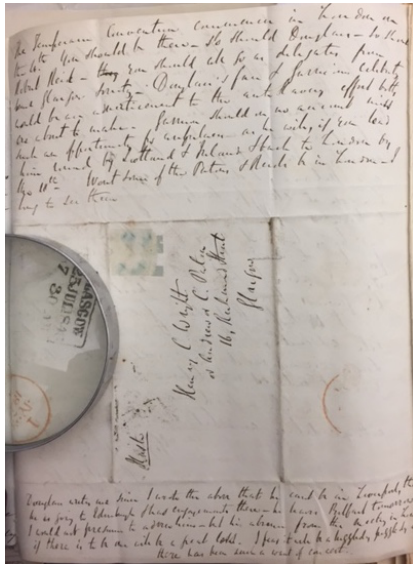 The Temperance Convention commences in London on
the 4th You should be there - So should Douglass - So should
Robert Reid - you should all go as delegates from
some Glasgow Society - Douglass's fame & Garrison's celebrity
would be an advertisement to the antislavery effort both
are about to make - Garrison should on no account miss
such an opportunity
him round by Scotland & Ireland & back to London by
Augt 10th Wont some of the Patons & Reids be in London - I
long to see them
Henry C Wright
Andrew Paton
Richmond Street
Glasgow
GLASGOW
Douglass writes me since I wrote the above that he cant be in Liverpool, that
he is going to Edinburgh & has engagements there - he leaves Belfast tomorrow
I would not presume to advise him - but his absence from the meeting in
if there is to be one will be a great loss. I fear it will be a higgledy piggledy
there has been such a want of concert.